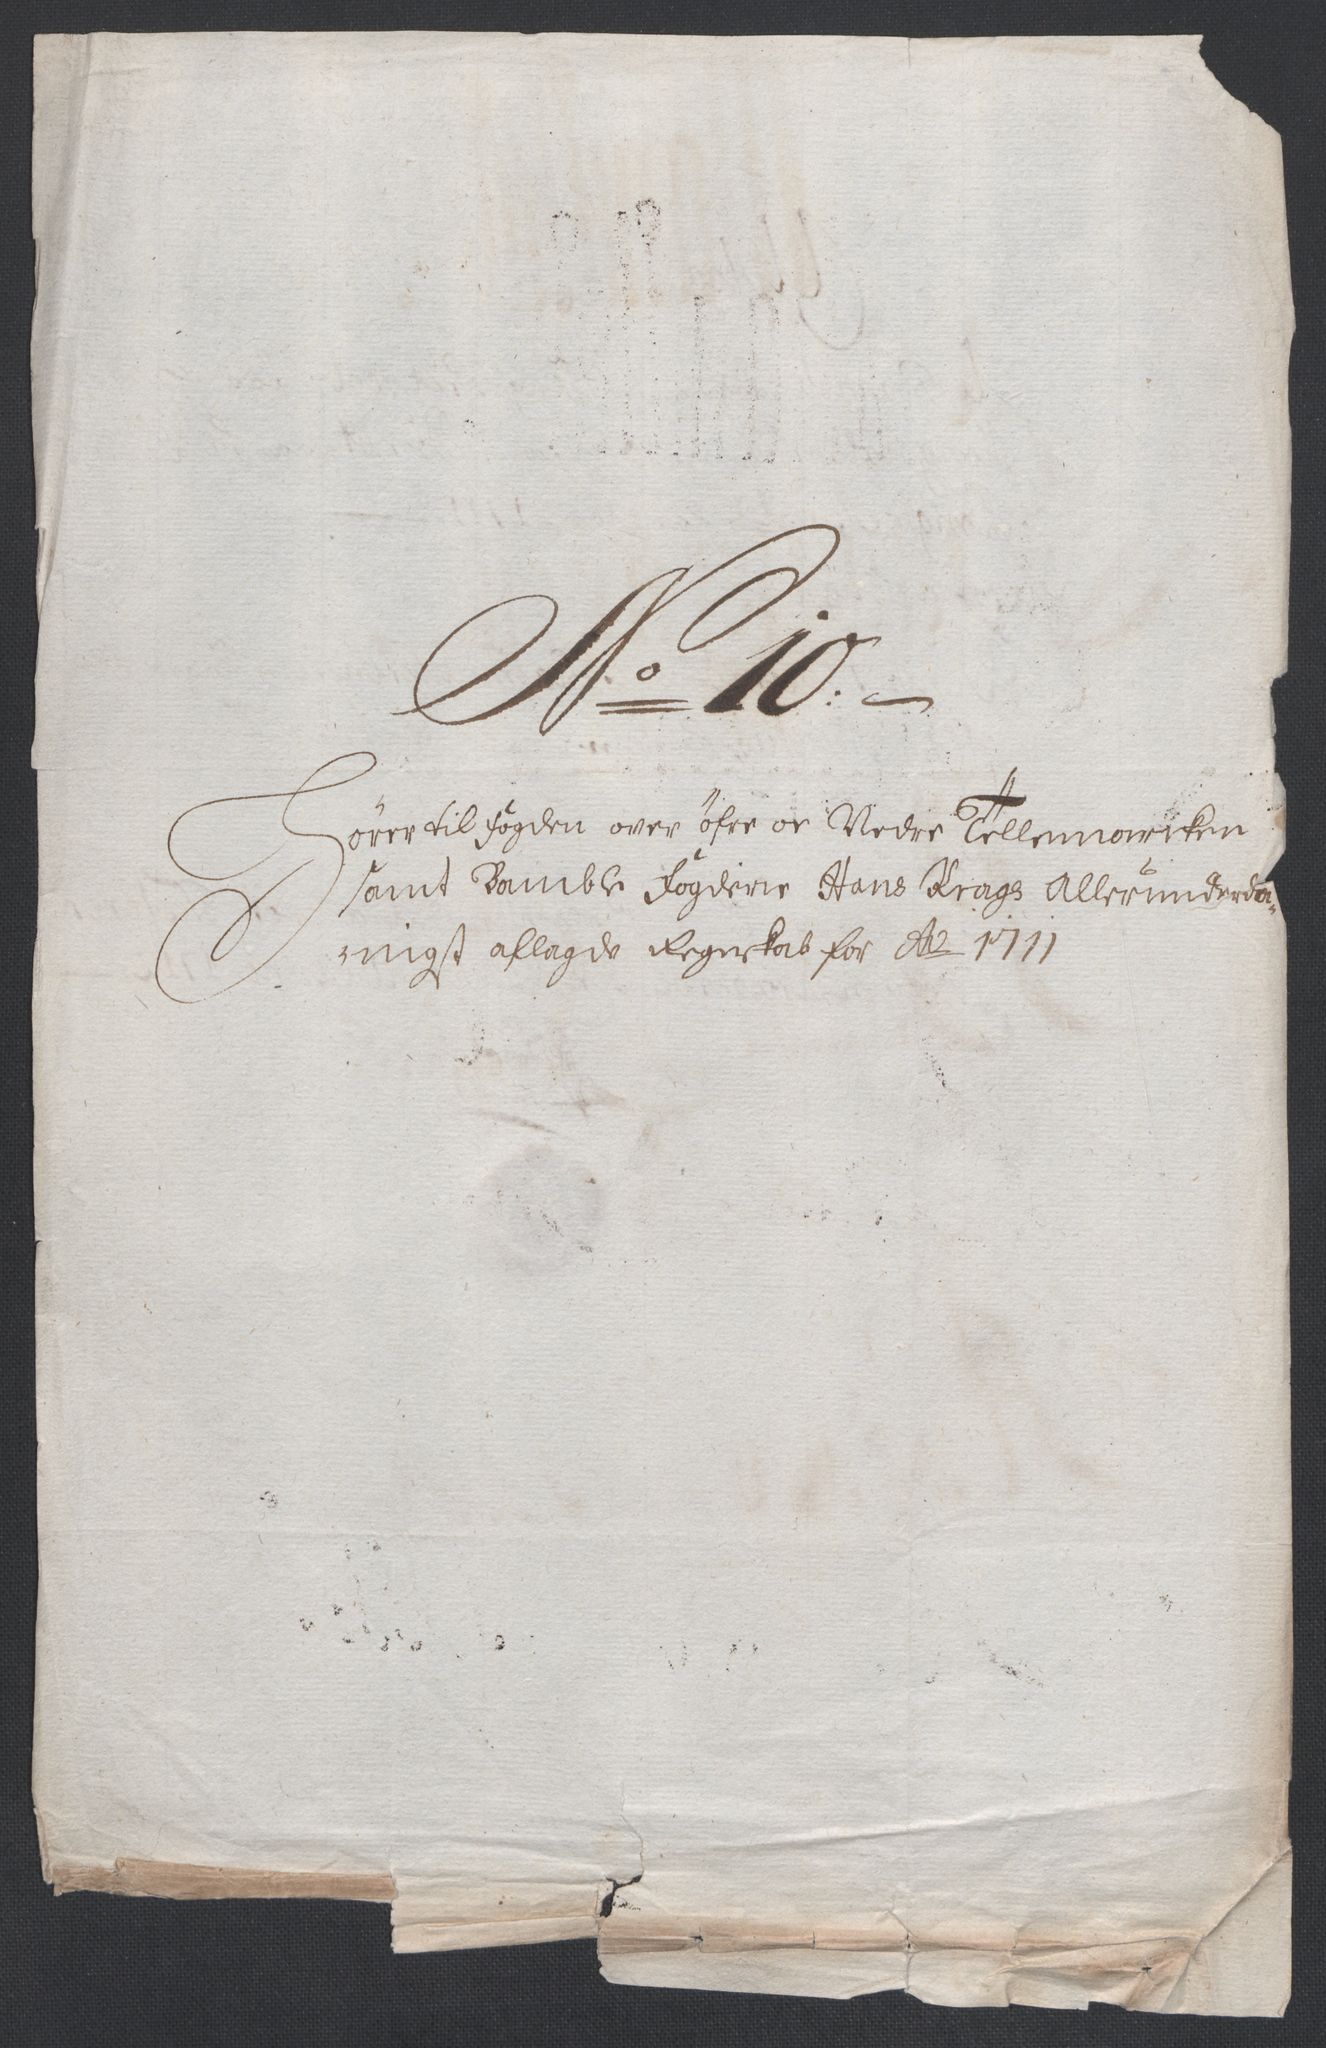 No 10.
Hörer til fogden over öfre oc Nedre Tellemarcken
samt Bamble fogderie Hans Krags Allerunderdā-
nigst aflagde Regnskab for Ao 1711